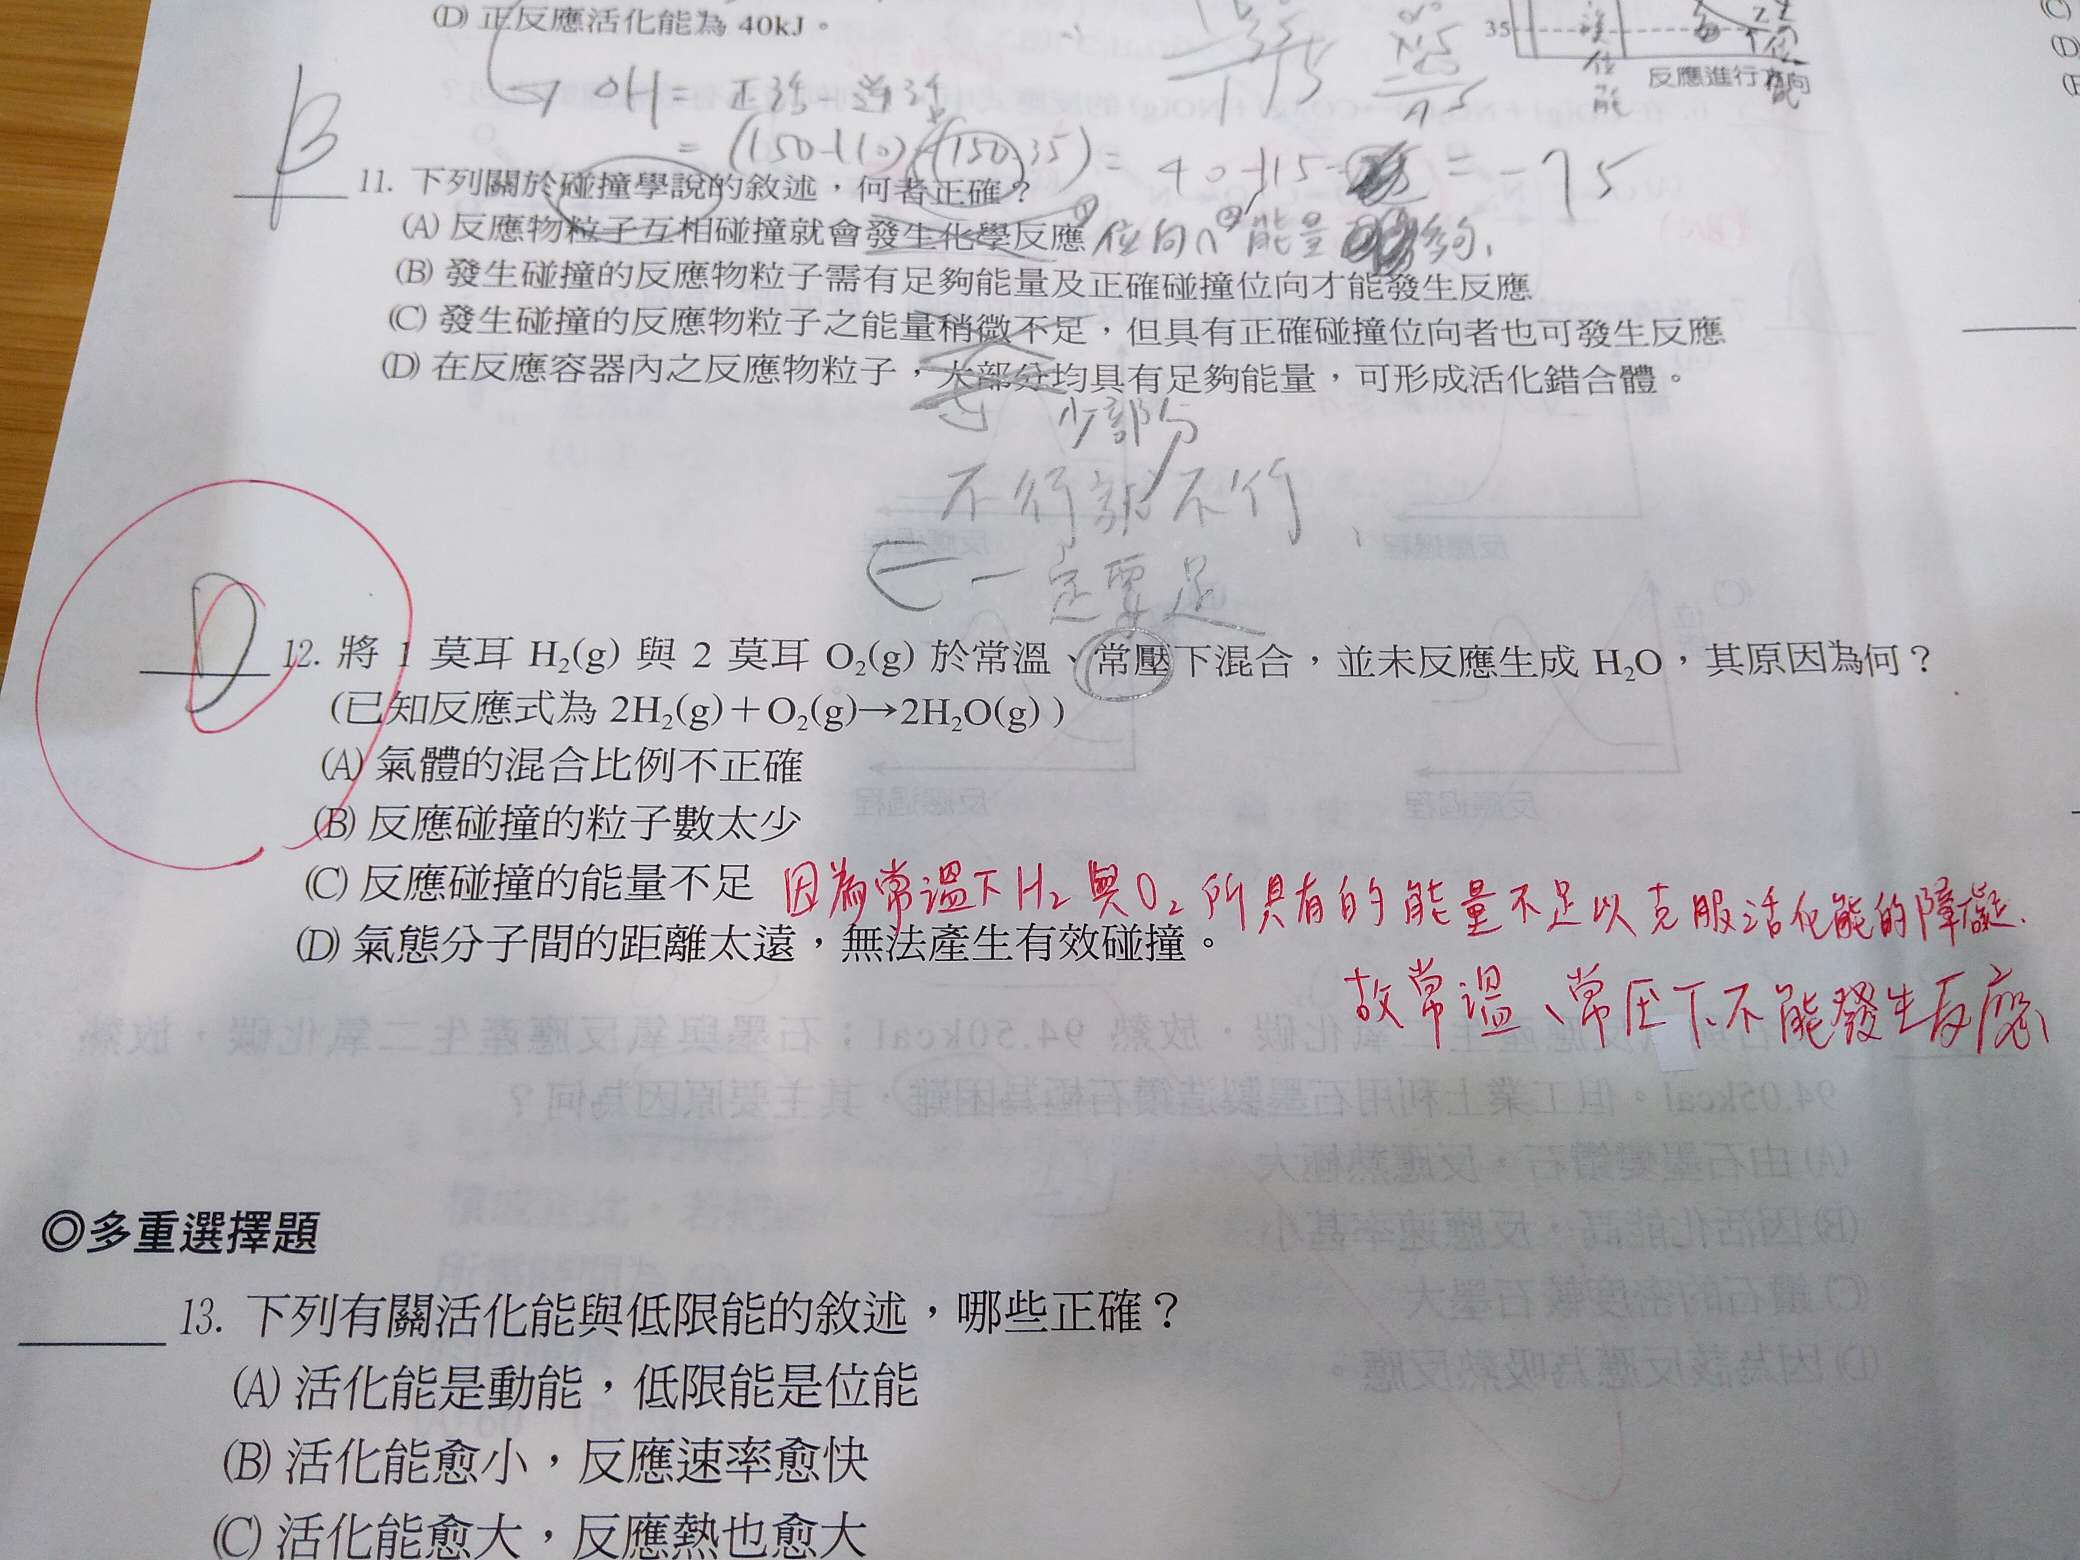 (D) 正反應活化能為 40kJ。
35
反應進行方向
位能
→ΔH = 正活 - 逆活
= (150-110)-(150-35) = 40-115 = -75
B
11. 下列關於碰撞學說的敘述,何者正確?
(A) 反應物粒子互相碰撞就會發生化學反應 ①位向∩②能量 夠、
(B) 發生碰撞的反應物粒子需有足夠能量及正確碰撞位向才能發生反應
(C) 發生碰撞的反應物粒子之能量稍微不足,但具有正確碰撞位向者也可發生反應
(D) 在反應容器內之反應物粒子,大部分均具有足夠能量,可形成活化錯合體。
少部份
不行就不行、
一定要足
D
12. 將 1 莫耳 H₂(g) 與 2 莫耳 O₂(g) 於常溫、常壓下混合,並未反應生成 H₂O,其原因為何?
(已知反應式為 2H₂(g)+O₂(g)→2H₂O(g) )
(A) 氣體的混合比例不正確
(B) 反應碰撞的粒子數太少
(C) 反應碰撞的能量不足 因為常溫下 H₂ 與 O₂ 所具有的能量不足以克服活化能的障礙.
(D) 氣態分子間的距離太遠,無法產生有效碰撞。
故常溫、常压下不能發生反應、
◎多重選擇題
13. 下列有關活化能與低限能的敘述,哪些正確?
(A) 活化能是動能,低限能是位能
(B) 活化能愈小,反應速率愈快
(C) 活化能愈大,反應熱也愈大